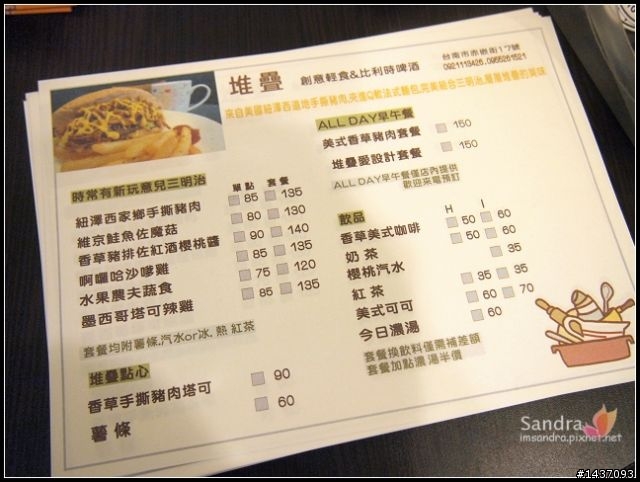 堆疊 創意輕食&比利時啤酒
台南市赤崁街17號
0921113426.0955261521
來自美國紐澤西道地手撕豬肉,夾進Q軟法式麵包,完美結合三明治,層層堆疊的美味
時常有新玩意兒三明治
單點 套餐
紐澤西家鄉手撕豬肉 85 135
維京鮭魚佐魔菇 80 130
香草豬排佐紅酒櫻桃醬 90 140
啊囉哈沙嗲雞 85 135
水果農夫蔬食 75 120
墨西哥塔可辣雞 85 135
套餐均附薯條.汽水or冰.熱 紅茶
堆疊點心
香草手撕豬肉塔可 90
薯條 60
ALL DAY早午餐
美式香草豬肉套餐 150
堆疊愛設計套餐 150
ALL DAY早午餐僅店內提供
歡迎來電預訂
飲品 H I
香草美式咖啡 50 60
奶茶 50 60
櫻桃汽水 35
紅茶 35 35
美式可可 60 70
今日濃湯 60
套餐換飲料僅需補差額
套餐加點濃湯半價
Sandra
imsandra.pixnet.net
#1437093